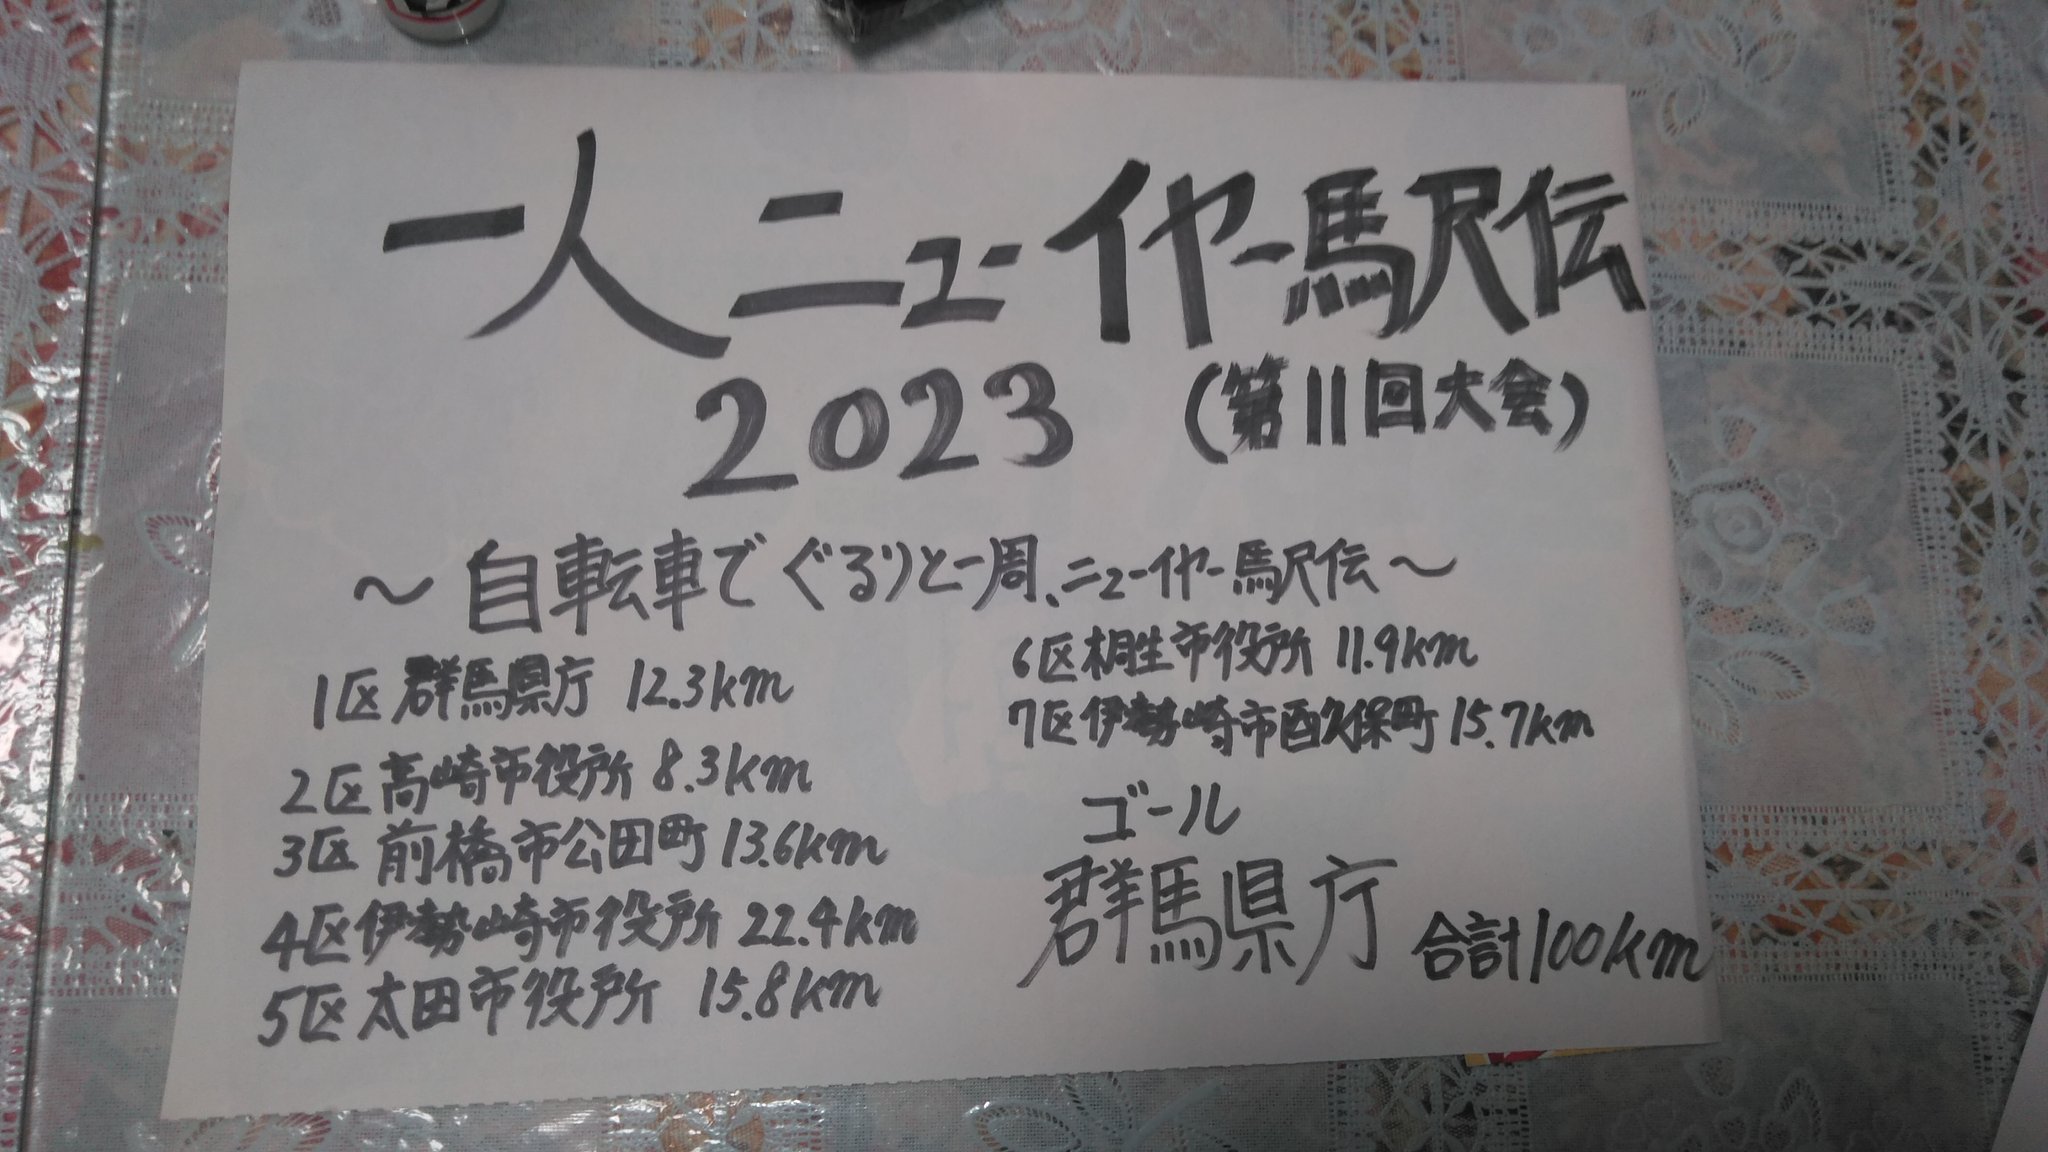 一人ニューイヤー駅伝
2023 (第11回大会)
～自転車でぐるりと一周、ニューイヤー駅伝～
1区群馬県庁 12.3km
2区高崎市役所 8.3km
3区前橋市公田町 13.6km
4区伊勢崎市役所 22.4km
5区太田市役所 15.8km
6区相生市役所 11.9km
7区伊勢崎市西久保町 15.7km
ゴール
群馬県庁 合計100km